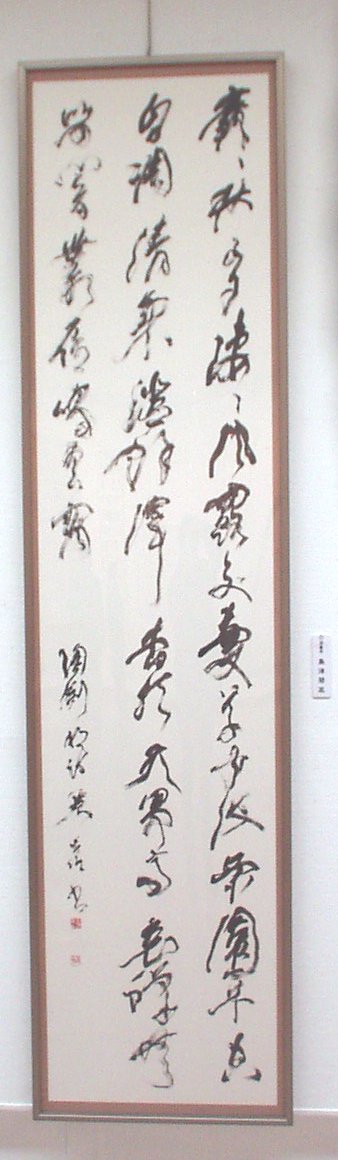 靡々秋已夕淒々風露交蔓草不復榮園木空
自凋清氣澄餘滓杳然天界高哀蟬無
歸響叢雁鳴雲霄 陶淵明詩 書